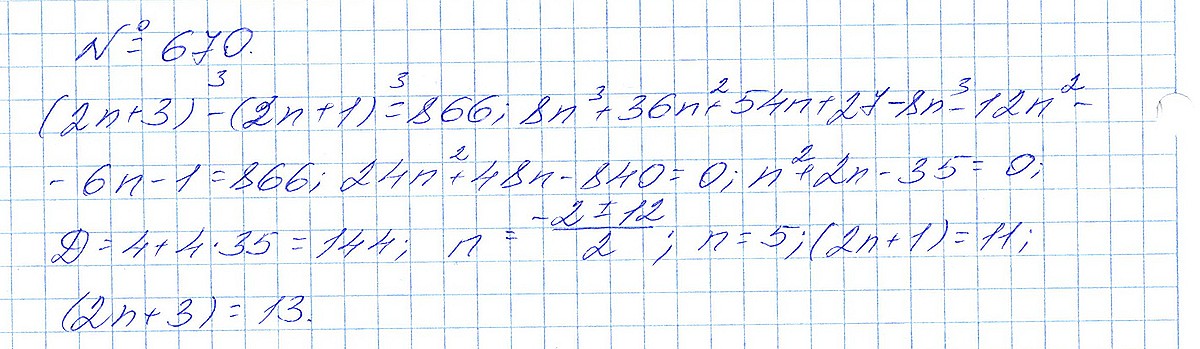 № 670.
(2n+3)³-(2n+1)³=866; 8n³+36n²+54n+27-8n³-12n²-
-6n-1=866; 24n²+48n-840=0; n²+2n-35=0;
D=4+4·35=144; n = (-2±12)/2; n=5; (2n+1)=11;
(2n+3)=13.